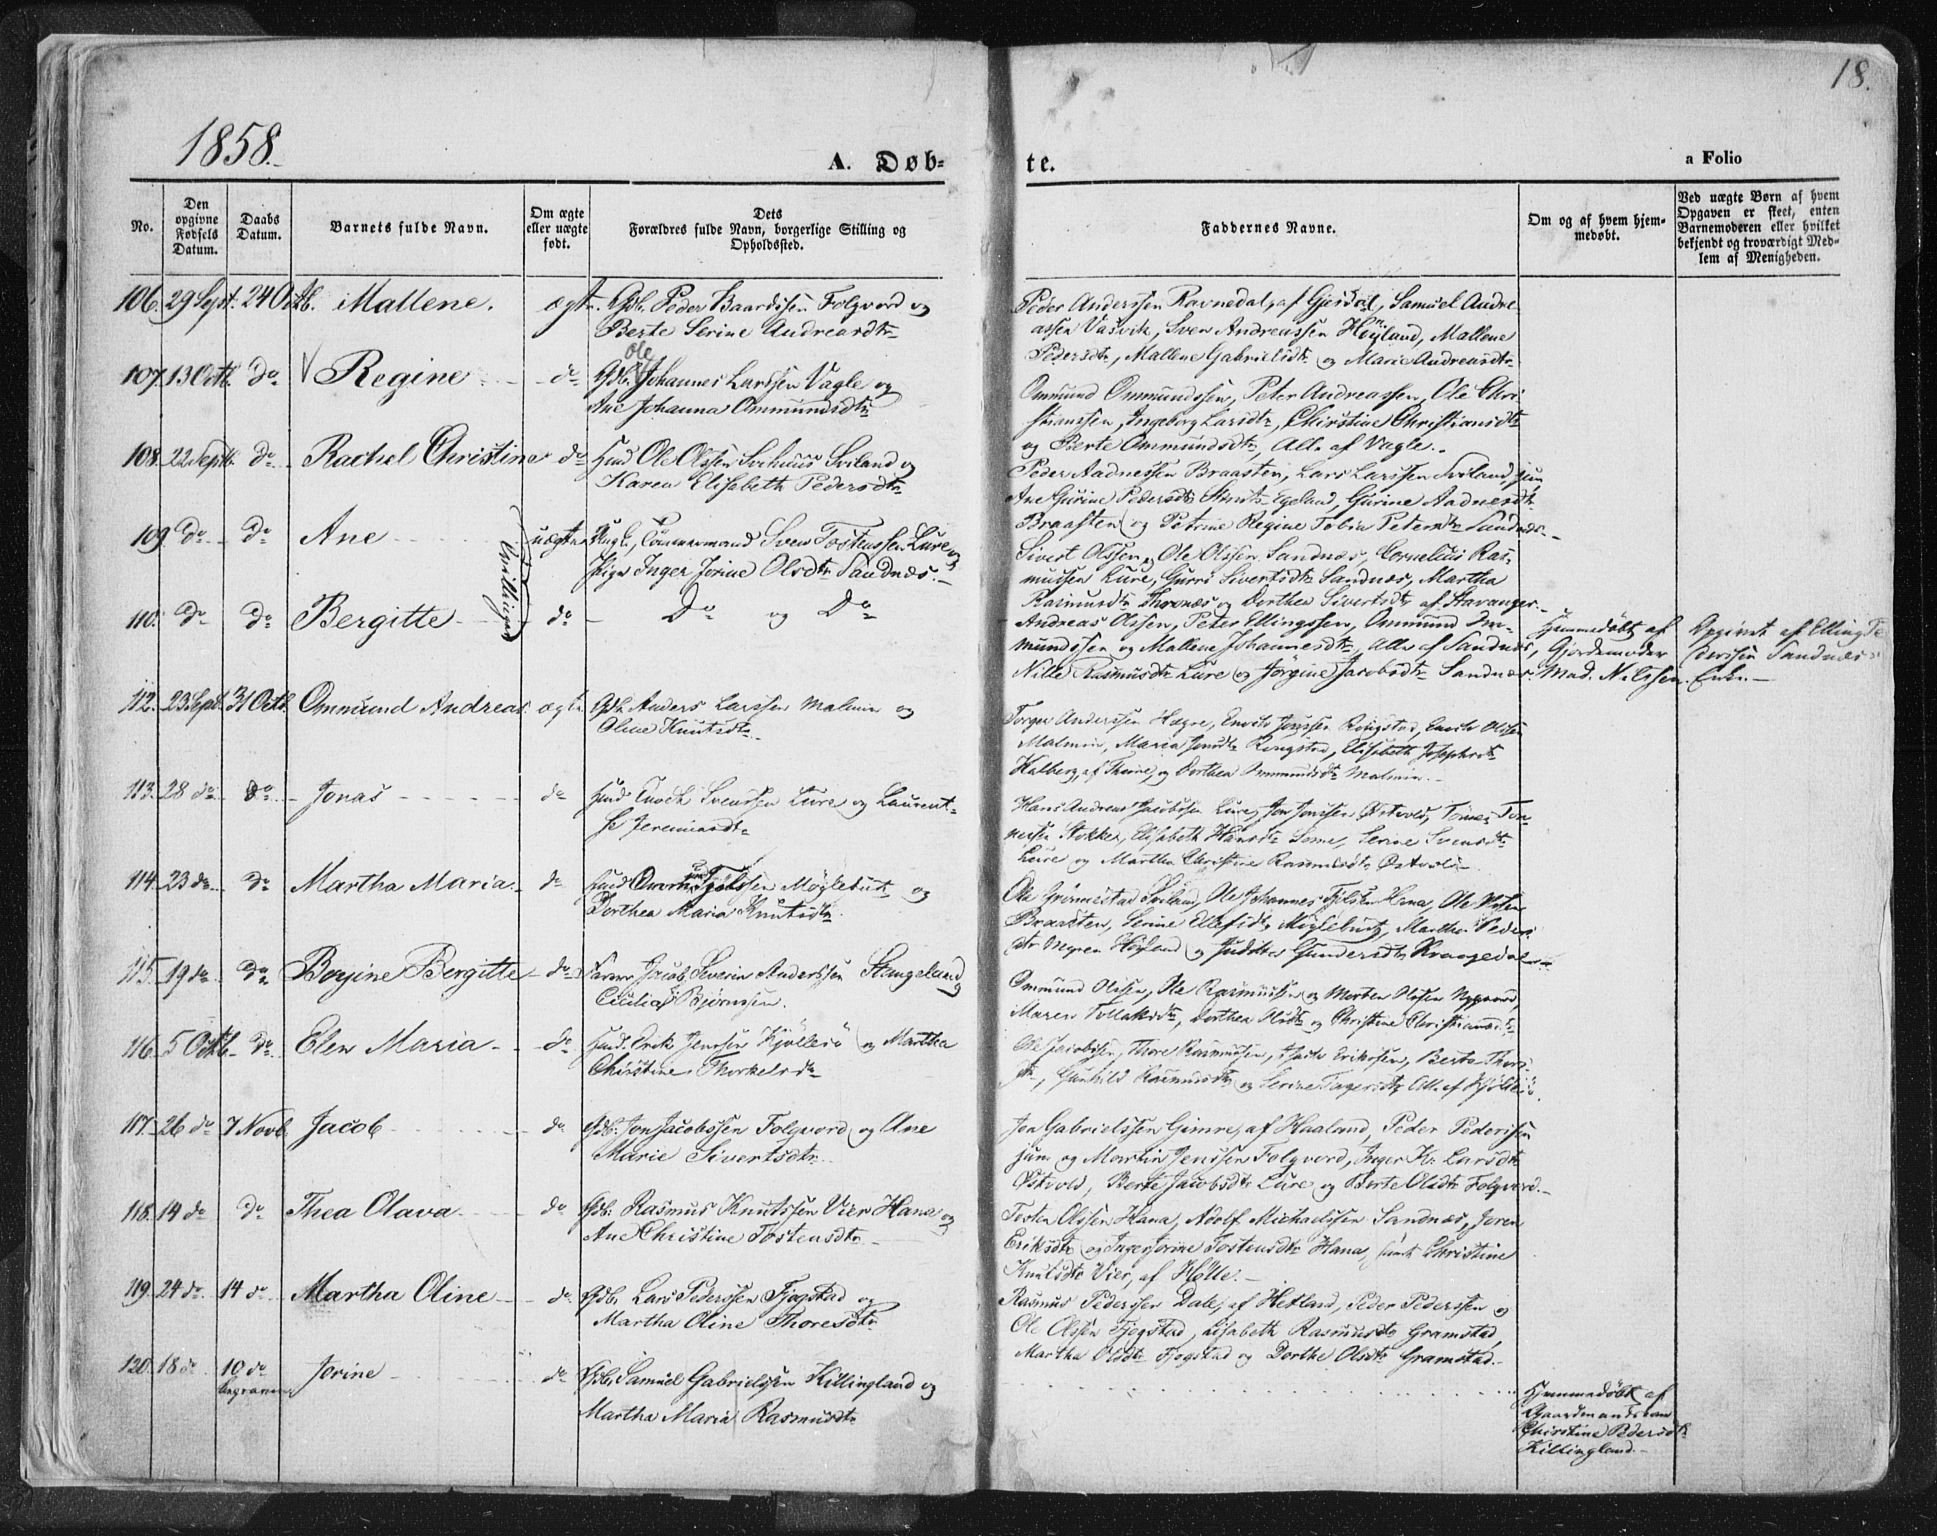 18.
1858.
A. Døb-
te.
a Folio
No.
Den opgivne Fødsels Datum.
Daabs Datum.
Barnets fulde Navn.
Om ægte eller uægte født.
Dets Forældres fulde Navn, borgerlige Stilling og Opholdssted.
Faddernes Navne.
Om og af hvem hjemmedøbt.
Ved uægte Børn af hvem Opgaven er skeet, enten Barnemoderen eller hvilket bekjendt og troværdigt Medlem af Menigheden.
106. 29 Sept. 24 Octb. Mallene. ægte. Gdb. Peder Baardssen Folgvord og
Berte Serine Andreasdtr
Peder Anderssen Ravnedal, af Gjesdal, Samuel Andre-
assen Vasvik, Sven Andreassen Høiland, Mallene
Pedersdtr, Mallene Gabrielsdtr og Marie Andreasdtr
107. 13 Octb. do Regine do Gdb. Ole Johannes Larssen Vagle og
Ane Johanna Ommundsdtr
Ommund Ommundssen, Peter Andreassen, Ole Chri-
stianssen, Ingeborg Larsdtr, Christine Christiansdtr
og Berte Ommundsdtr, Alle af Vagle.
108. 22 Septb. do Rachel Christine do Husd Ole Olssen Sviland og
Karen Elisabeth Pedersdtr
Peder Aadnessen Braasten, Lars Larssen Sviland, jun
Ane Gurine Pedersdtr Egeland, Gurine Aadnesdtr
Braasten og Petrine Regine Tobia Petersdtr Sandnæs.
109. do do Ane uægte Ungk. Tømmermand Sven Tostenssen Lure og
Pige Inger Jorine Olsdtr Sandnæs.
Tvillinger
Sivert Olssen og Ole Olssen Sandnæs, Cornelius Ras-
mussen Lure, Gurri Sivertsdtr Sandnæs, Martha
Rasmusdtr og Dorthea Sivertsdtr af Stavanger.
110. do do Bergitte do Do og Do
Andreas Olssen, Peter Ellingssen, Ommund Om-
mundssen og Mallene Johannesdtr, Alle af Sandnæs,
Nille Rasmusdtr Lure og Jørgine Jacobsdtr Sandnæs.
Hjemmedøbt af
Gjordemoder
Mad. Nilssen.
Opgivet af Elling Pe
dersen Sandnæs
Enke.
112. 23 Sept. 31 Octb. Ommund Andreas. ægte. Gdb. Anders Larssen Malmin og
Oline Knutsdtr
Torger Anderssen Hogre, Enoch Jonssen Ringstad, Enoch Olssen
Malmin, Maria Jonsdtr Ringstad, Elisabeth Josephsdtr
Kalberg, af Thime, og Dorthea Ommundsdtr Malmin.
113. 28 do do Jonas do Husd Enoch Svenssen Lure og Laurent-
se Jeremiasdtr
Hans Andreas Jacobssen Lure, Jon Jonssen Østvold, Tønnes Tøn-
nessen Stokke, Elisabeth Hansdtr Some, Serine Svensdtr
Lure og Martha Christine Rasmusdtr Østvold
114. 23 do do Martha Maria do Husd Tjølssen Møglebust og
Dorthea Maria Knutsdtr.
Ole Sviland, Ole Johannes Tjølssen Hana, Ole
Braasten, Serine Ellefsdtr Møglebust, Martha Peders
dtr Høyland og Judithe Gundersdtr Kraagedal
115. 19 do do Bojine Bergitte do Jacob Severin Anderssen Stangeland og
Cecilia Bjørnssen.
Ommund Olssen, Ole Rasmussen og Morten Olssen
Maren Tollaksdtr, Dorthea Olsdtr og Christine Christiansdtr
116. 5 Octb. do Elen Maria do Husd. Jenssen Kjøllesø og Martha
Christine Thorkelsdtr
Ole Jacobssen, Thore Rasmussen, Erikssen, Berte Thors-
dtr, Gunhild Rasmusdtr og Serine Tagersdtr All. af Kjøllesø.
117. 26 do 7 Novb. Jacob do Gdb. Jon Jacobssen Folgvord og Ane
Marie Sivertsdtr.
Jon Gabrielssen Gimre, af Haaland, Peder Pederssen
jun. og Martin Jenssen Folgvord, Inger K. Larsdtr
Østvold, Berte Jacobsdtr Lure og Berte Olsdtr Folgvord.
118. 14 do do Thea Olava do Gdb. Rasmus Knutssen Vier Hana og
Ane Christine Tostensdtr
Tosten Olssen Hana, Adolf Michaelssen Sandnæs, Joren
Eriksdtr og Inger Jorine Tostensdtr Hana, samt Christine
Knutsdtr Vier, af Hølle.
119. 24 do 14 do Martha Oline do Gdb. Lars Pederssen Fjogstad og
Martha Oline Thoresdtr
Rasmus Pederssen Dale, af Hetland, Peder Pederssen og
Ole Olssen Fjogstad, Lisabeth Rasmusdtr Gramstad,
Martha Olsdtr Fjogstad og Dorthe Olsdtr Gramstad.
120. 18 do 10 do begraven Jorine do Gdb. Samuel Gabrielssen Killingland og
Martha Maria Rasmusdtr
Hjemmedøbt af
Gaardmandskone
Christine Pedersdtr
Killingland.